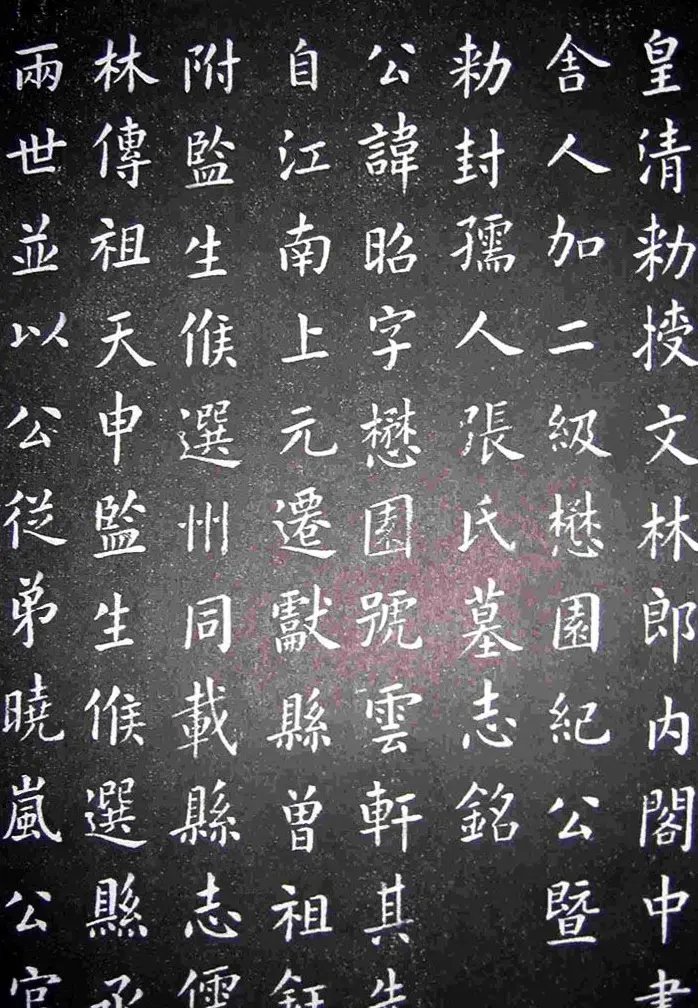 皇清敕授文林郎内閣中書
舍人加二級懋園紀公暨
敕封孺人張氏墓志銘
公諱昭字懋園號雲軒其先
自江南上元遷獻縣曾祖
附監生候選州同載縣志儒
林傳祖天申監生候選縣丞
兩世並以公従弟曉嵐公官